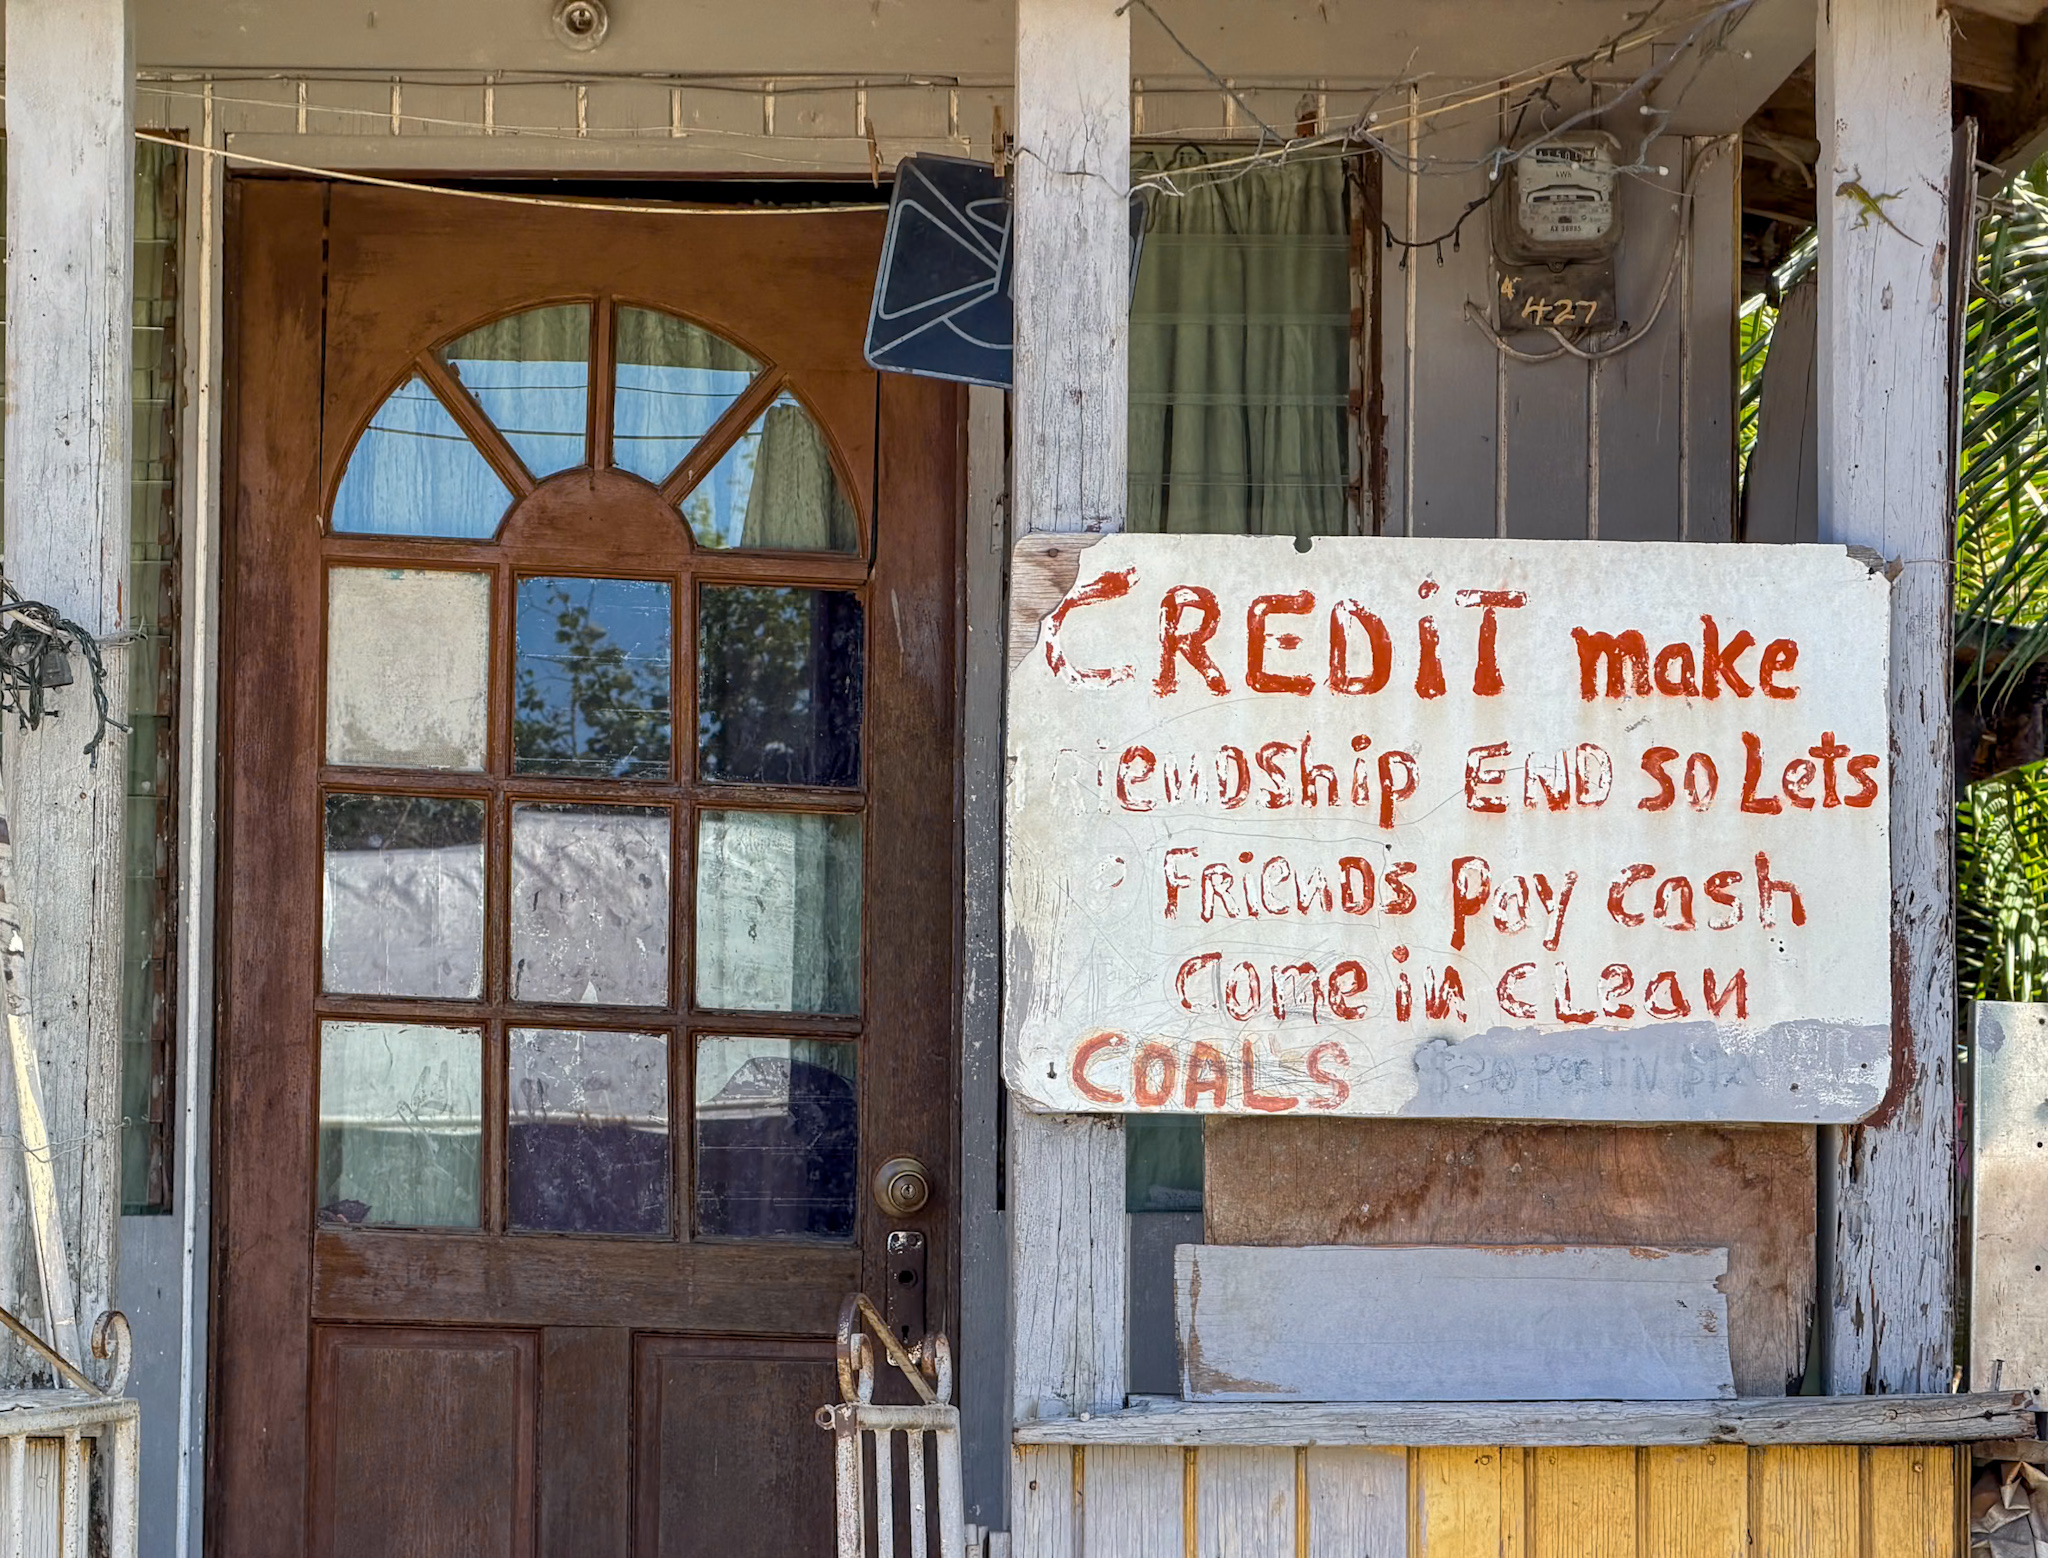 kWh
427
CREDiT make
riendship END so Lets
Friends pay cash
come in cLean
COALS